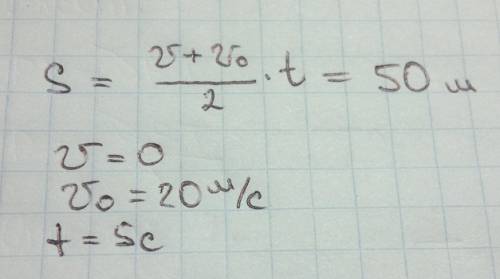 S = (v + v₀)/2 · t = 50 м
v = 0
v₀ = 20 м/с
t = 5с